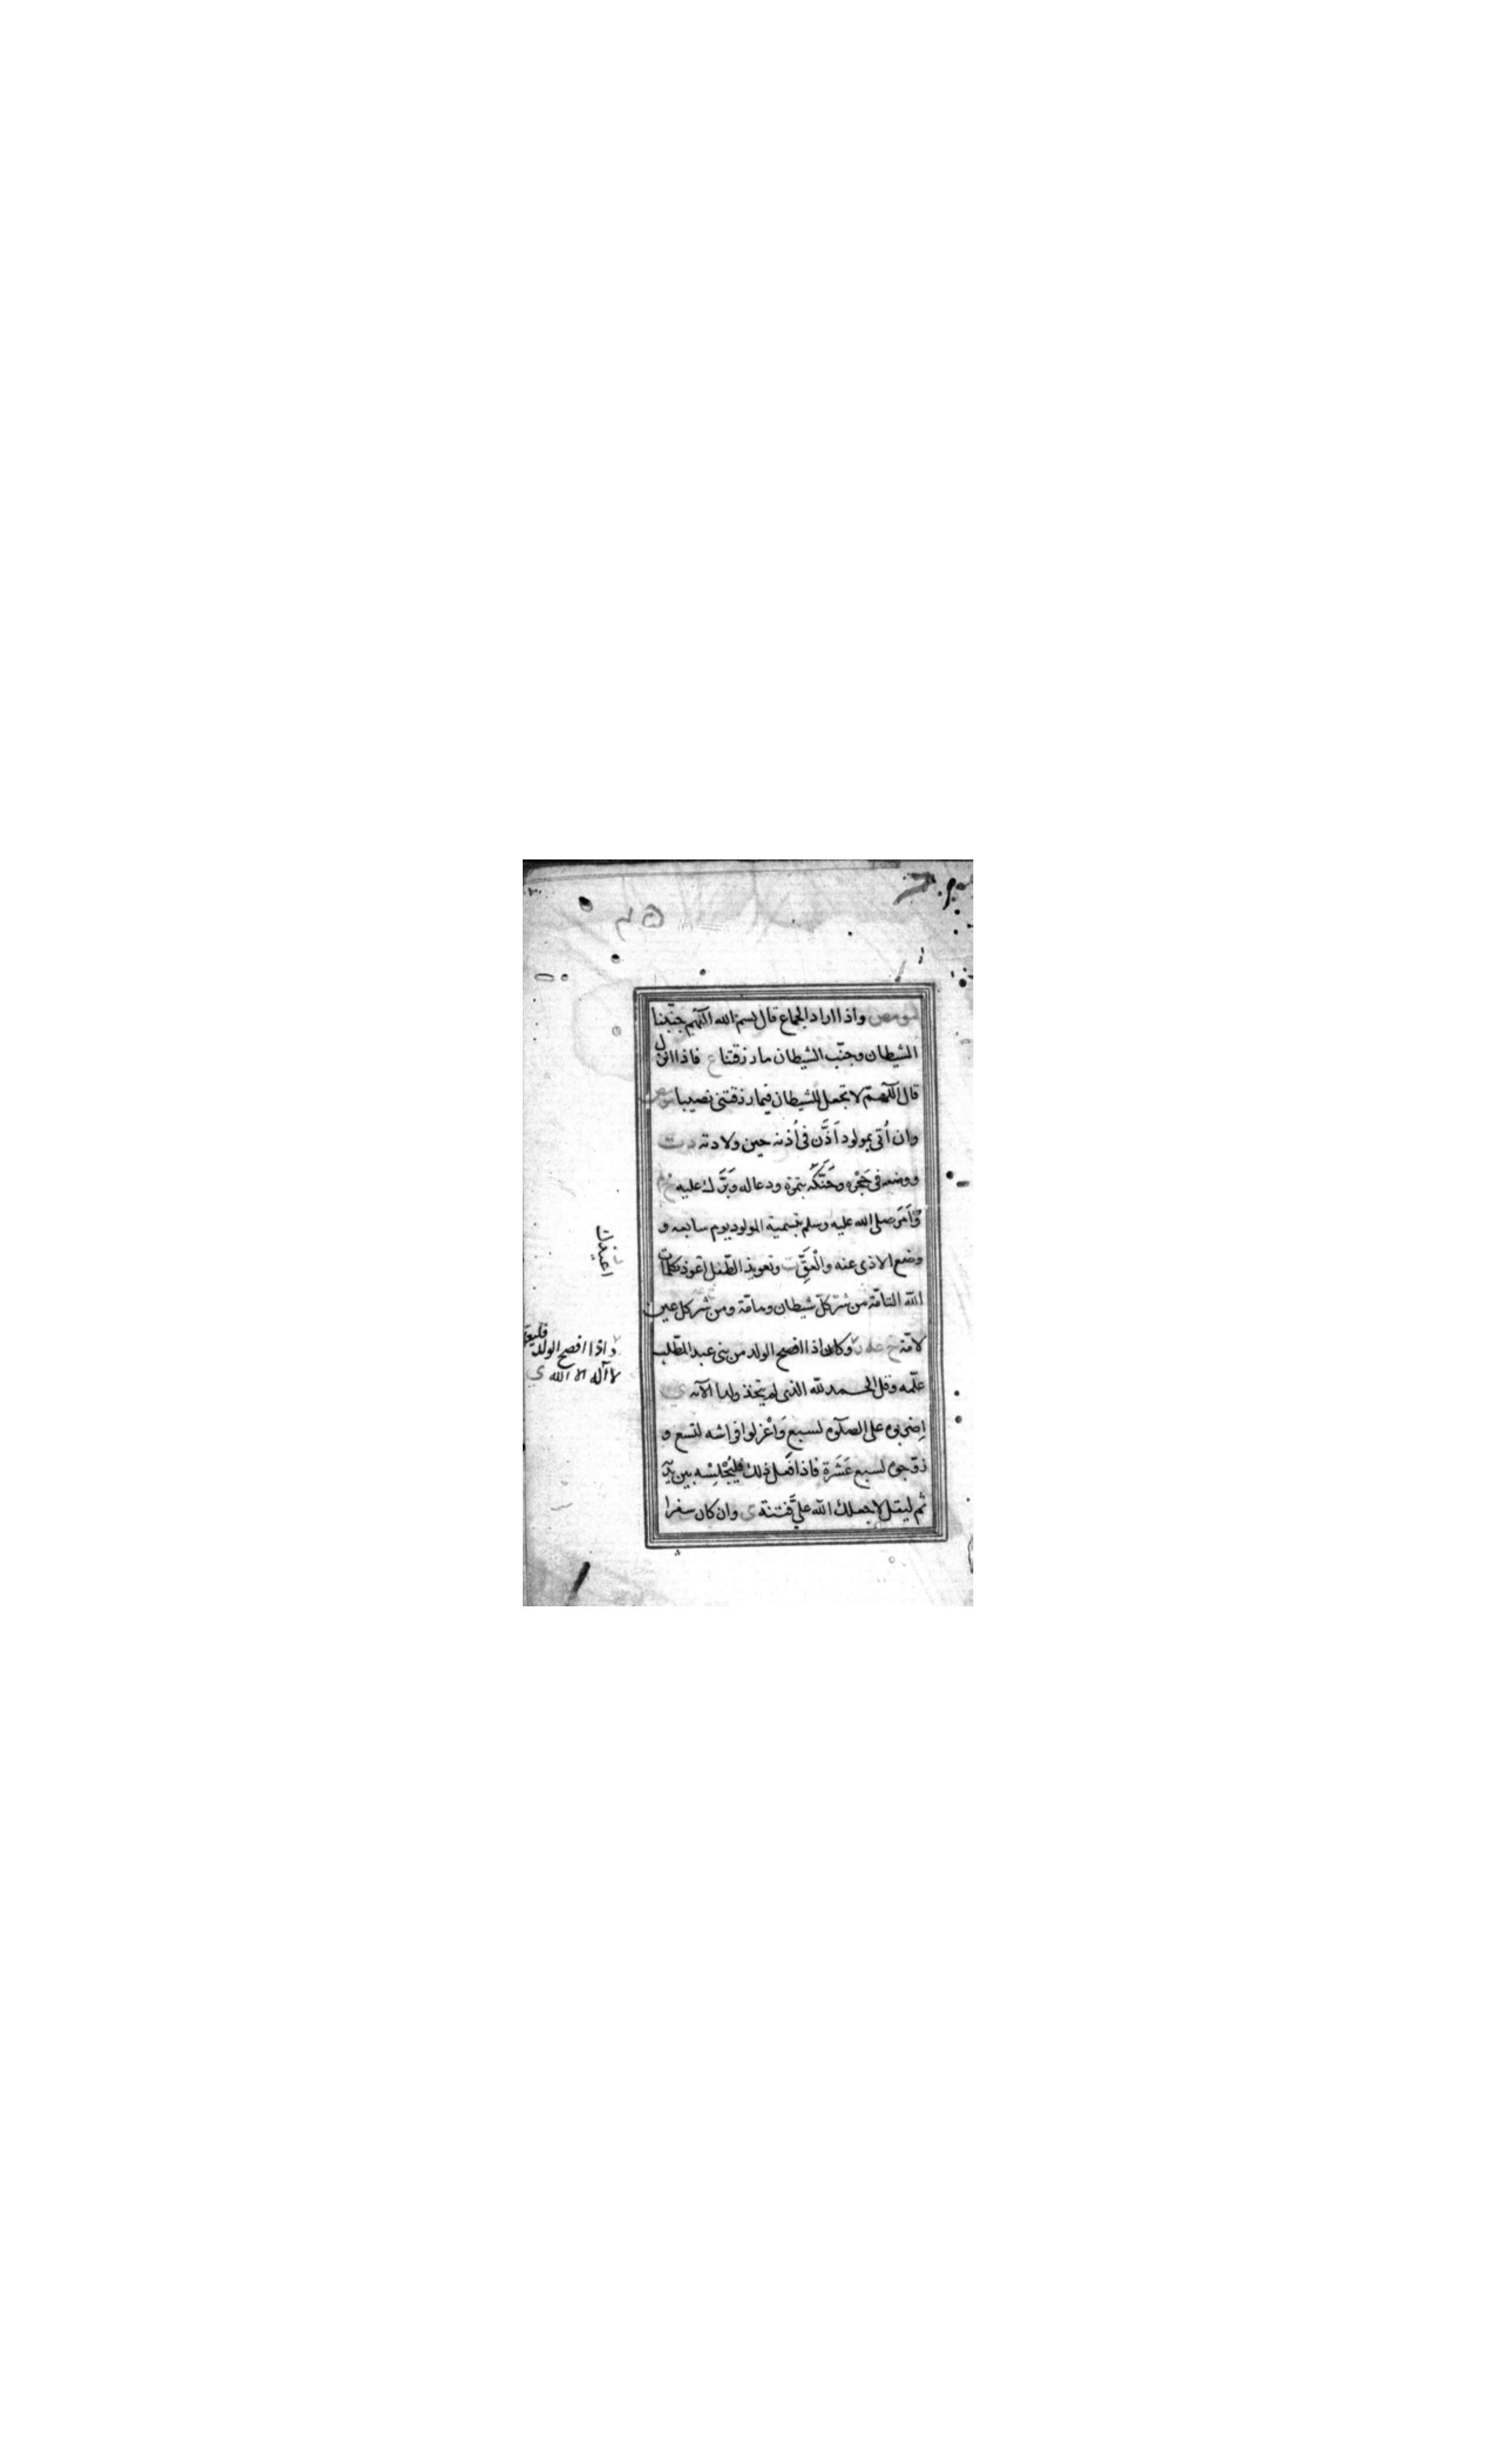 مومص واذا اراد الجماع قال بسم الله اللهم جنّبنا
الشيطان وجنّب الشيطان ما رزقتنا ع فاذا انزل
قال اللهمّ لا تجعل للشيطان فيما رزقتنى نصيبا مومص
وان اُتى بمولود اَذَّن فى اُذنه حين ولادته دت
ووضعه فى حَجْره وحَنَّكَه بتمرة ودعا له وبَرَّك عليه خ م
واَمَر صلى الله عليه وسلم بتسمية المولود يوم سابعه و
وضع الاذى عنه والْعَقِّ ت وتعويذ الطّفل اعوذ بكلمات
الله التامّة من شرّ كلّ شيطان وهامّة ومن شر كل عين
لامّة خ عه وكان اذا افصح الولد من بنى عبد المطّلب
علّمه وقل الحمد لله الذى لم يتخذ ولدا الآيه ى
اِضربوه على الصلوة لسبع وَاعْزلوا فراشه لتسع و
زوّجوه لسبع عَشَرة فاذا فَعل ذلك فليُجْلِسْه بين يديه
ثم ليقل لا جعلك الله علىَّ فتنة ى وان كان سفرا
اعيذك
واذا افصح الولد فليعلمه
لا اله الا الله ى